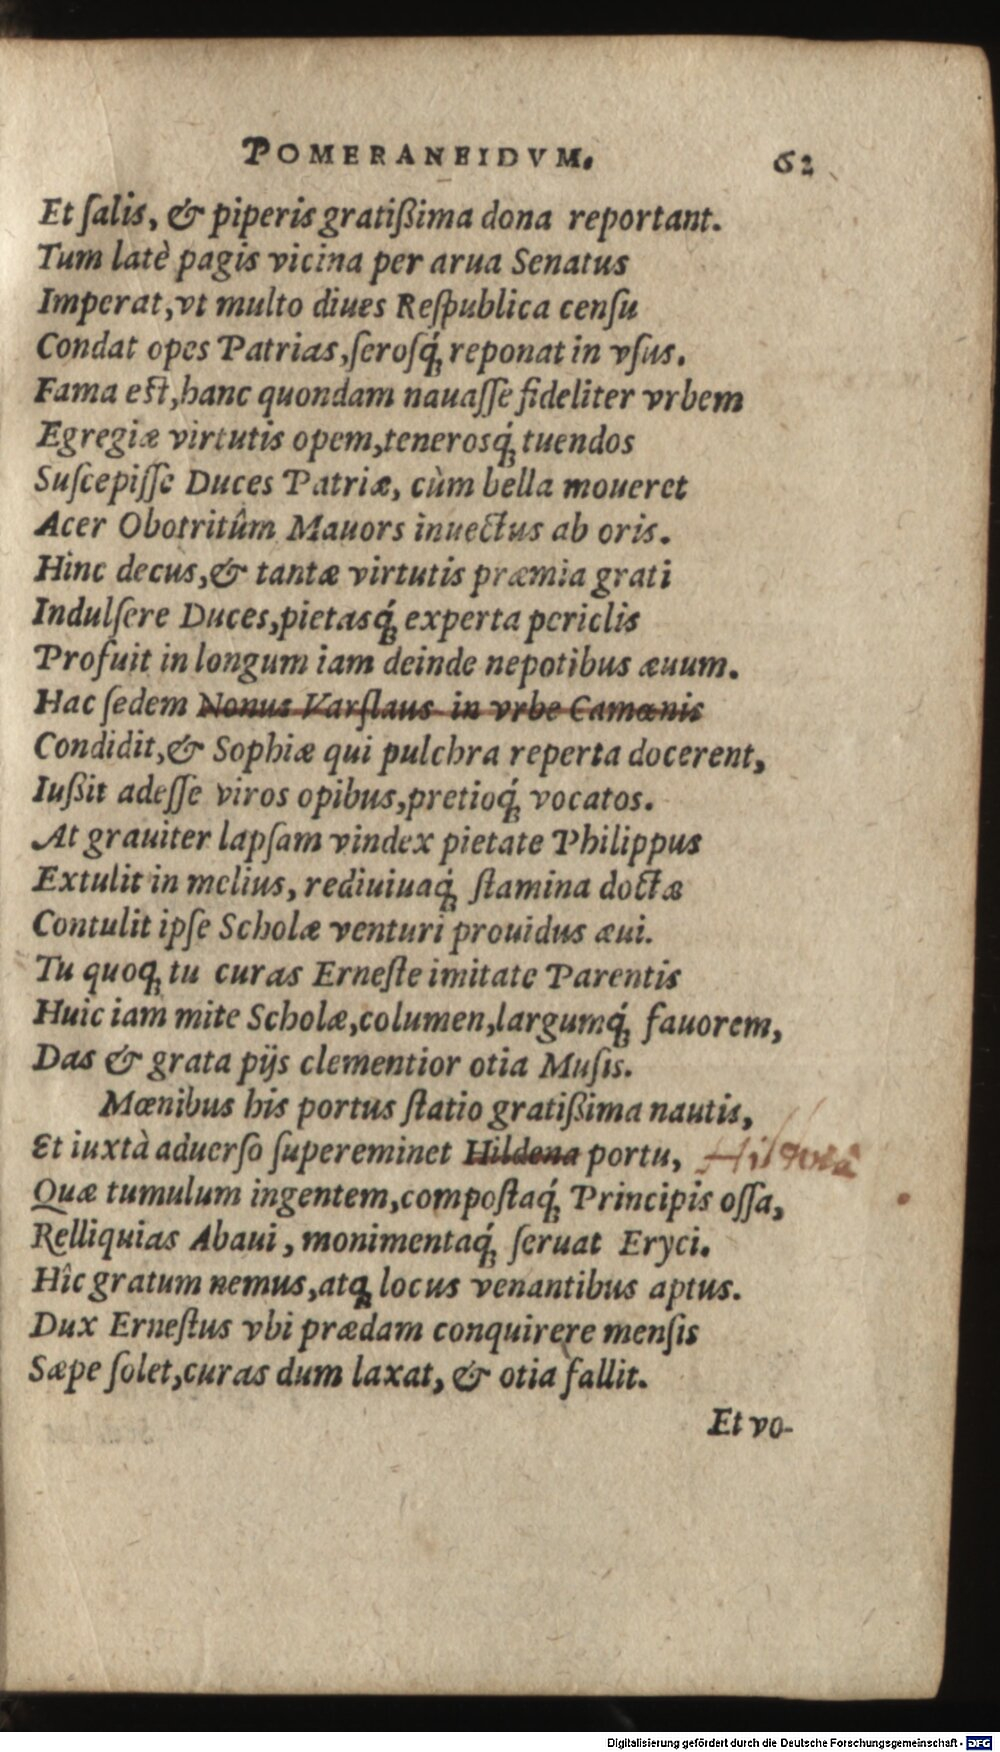 POMERANEIDVM. 62
Et ſalis, & piperis gratißima dona reportant.
Tum latè pagis vicina per arua Senatus
Imperat, vt multo diues Reſpublica cenſu
Condat opes Patrias, ſeroſq́; reponat in vſus.
Fama eſt, hanc quondam nauaſſe fideliter vrbem
Egregiæ virtutis opem, tenerosq́; tuendos
Suſcepiſſe Duces Patriæ, cùm bella moueret
Acer Obotritûm Mauors inuectus ab oris.
Hinc decus, & tantæ virtutis præmia grati
Indulſere Duces, pietasq́; experta periclis
Profuit in longum iam deinde nepotibus æuum.
Hac ſedem Nonus Varſlaus in vrbe Camœnis
Condidit, & Sophiæ qui pulchra reperta docerent,
Iußit adeſſe viros opibus, pretioq́; vocatos.
At grauiter lapſam vindex pietate Philippus
Extulit in melius, rediuiuaq́; ſtamina doctæ
Contulit ipſe Scholæ venturi prouidus æui.
Tu quoq; tu curas Erneſte imitate Parentis
Huic iam mite Scholæ, columen, largumq́; fauorem,
Das & grata pijs clementior otia Muſis.
Mœnibus his portus ſtatio gratißima nautis,
Et iuxtà aduerſo ſupereminet Hildena portu,
Quæ tumulum ingentem, compoſtaq́; Principis oſſa,
Relliquias Abaui, monimentaq́; ſeruat Eryci.
Hîc gratum nemus, atq; locus venantibus aptus.
Dux Erneſtus vbi prædam conquirere menſis
Sæpe ſolet, curas dum laxat, & otia fallit.
Et vo-
Digitalisierung gefördert durch die Deutsche Forschungsgemeinschaft - DFG